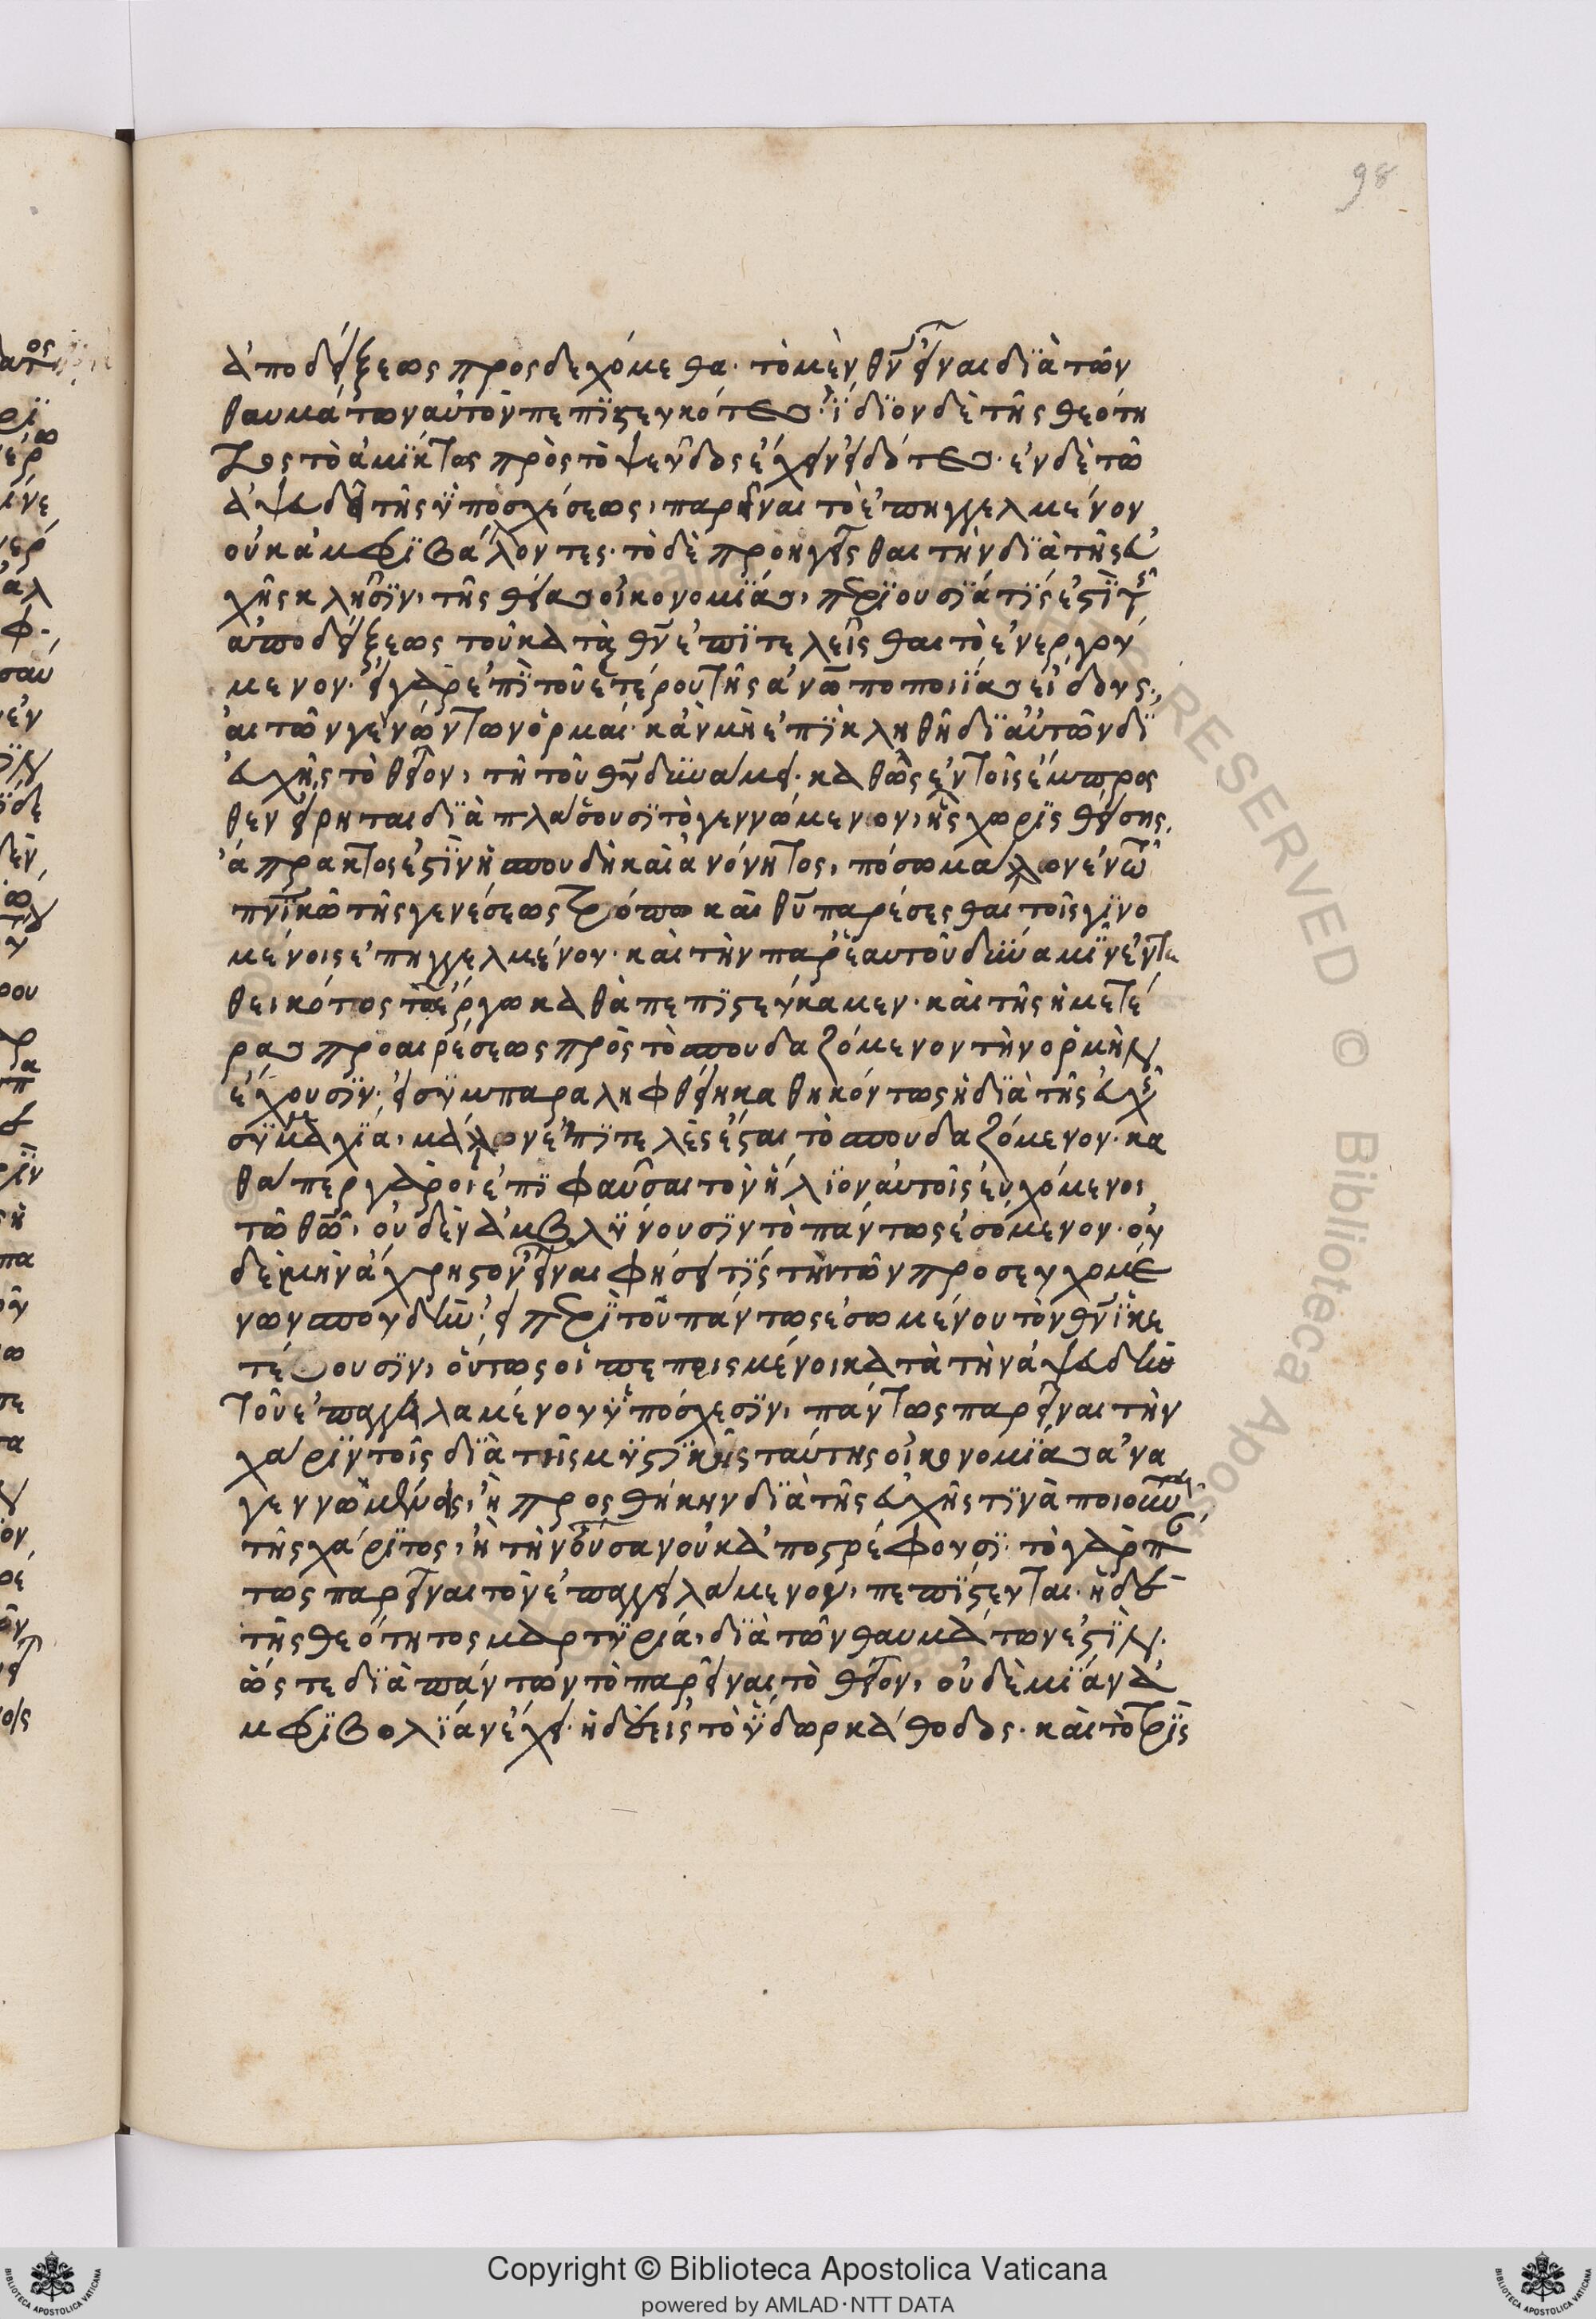 98
ἀποδείξεως προσδεχόμεθα· τὸ μὲν θν̅ εἶναι διὰ τῶν
θαυμάτων αὐτὸν πεπιστευκότες· ἴδιον δὲ τῆς θεότη
τος τὸ ἀμίκτως πρὸς τὸ ψεῦδος ἔχειν εἰδότες· ἐν δὲ τῶ
ἀψευδεῖ τῆς ὑποσχέσεως, παρεῖναι τὸ ἐπηγγελμένον
οὐκ ἀμφιβάλλοντες· τὸ δὲ προηγεῖσθαι τὴν διὰ τῆς εὐ
χῆς κλῆσιν, τῆς θείας οἰκονομίας, περιουσία τίς ἐστι τῆς
ἀποδείξεως τοῦ κατὰ θν̅ ἐπιτελεῖσθαι τὸ ἐνεργού
μενον· εἰ γὰρ ἐπὶ τοῦ ἑτέρου τῆς ἀνθρωποποιίας εἴδους,
αἱ τῶν γενώντων ὁρμαί· κἂν μὴ ἐπικληθῆ δι αὐτῶν δι
εὐχῆς τὸ θεῖον, τῆ τοῦ θυ̅ δυνάμει· καθὼς ἐν τοῖς ἔμπροσ
θεν εἴρηται διαπλάσουσι τὸ γεννώμενον, ἧς χωρὶς θείσης,
ἄπρακτος ἐστὶν ἡ σπουδὴ καὶ ἀνόνητος, πόσω μᾶλλον ἐν τῶ
πνικῶ τῆς γενέσεως τρόπω καὶ θυ̅ παρέσεσθαι τοῖς γινο
μένοις ἐπηγγελμένου· καὶ τὴν παρ ἑαυτοῦ δύναμιν ἐντε
θεικότος τῶ ἔργω καθὰ πεπιστεύκαμεν· καὶ τῆς ἡμετέ
ρας προαιρέσεως πρὸς τὸ σπουδαζόμενον τὴν ὁρμὴν
ἔχουσιν· εἰ συμπαραληφθείη καθηκόντως ἡ διὰ τῆς εὐχῆς
συμμαχία, μᾶλλον ἐπιτελὲς ἔσται τὸ σπουδαζόμενον· κα
θάπερ γὰρ οἱ ἐπιφαῦσαι τὸν ἥλιον αὐτοῖς εὐχόμενοι
τῶ θῶ̅, οὐδὲν ἀμβλύνουσιν τὸ πάντως ἐσόμενον· οὐ
δὲ μὴν ἄχρηστον εἶναι φήσει τίς τὴν τῶν προσευχομέ
νων σπουδήν· εἰ περὶ τοῦ πάντως ἐσωμένου τὸν θν̅ ἱκε
τεύουσιν, οὕτως οἱ πεπεισμένοι κατὰ τὴν ἀψευδῆ
τοῦ ἐπαγγειλαμένου ὑπόσχεσιν, πάντως παρεῖναι τὴν
χάριν τοῖς διὰ τῆς μυστικῆς ταύτης οἰκονομίας ἀνα
γεννωμένοις, ἢ προσθήκην διὰ τῆς εὐχῆς τινὰ ποιοῦνται
τῆς χάριτος, ἢ τὴν οὖσαν οὐκ ἀποστρέφουσι· τὸ γὰρ πάν
τως παρεῖναι τὸν ἐπαγγειλάμενον, πεπίστευται· ἡ δὲ
τῆς θεότητος μαρτυρία, διὰ τῶν θαυμάτων ἐστὶν·
ὥς τε διὰ πάντων τὸ παρεῖναι τὸ θεῖον, οὐδὲ μίαν ἀ
μφιβολίαν ἔχει· ἡ δὲ εἰς τὸ ὕδωρ κάθοδος· καὶ τὸ τρὶς
Copyright © Biblioteca Apostolica Vaticana
powered by AMLAD·NTT DATA